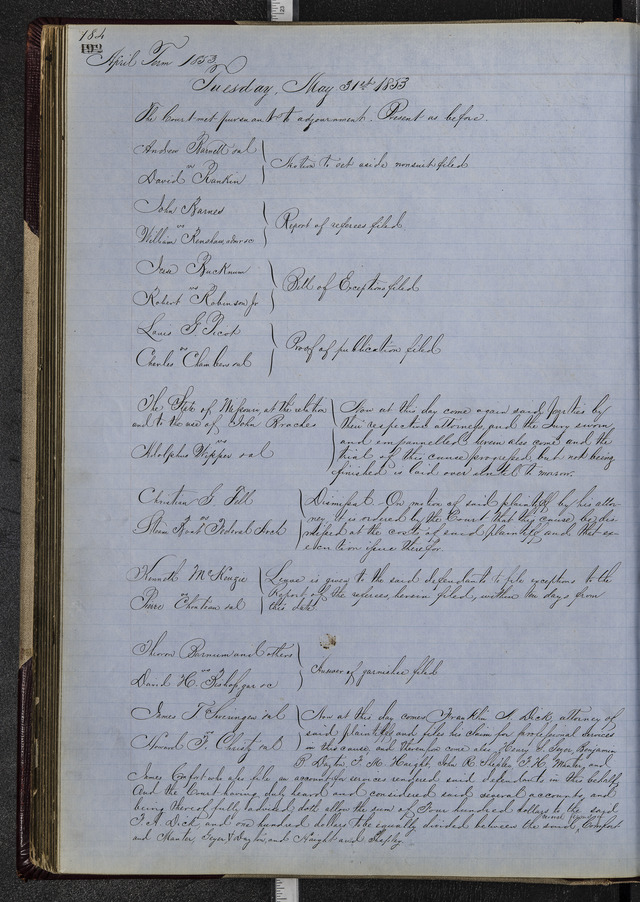 184
192
April Term 1853
Tuesday, May 31st 1853
The Court met pursuant to adjournment. Present as before.
Andrew Barnett et al
vs
David Rankin
Motion to set aside nonsuit filed
John Barnes
vs
William Renshaw admr &c
Report of referees filed
Jesse Buckman
vs
Robert Robinson Jr
Bill of Exceptions filed
Louis G Picot
vs
Charles Chambers et al
Proof of publication filed
The State of Missouri, at the relation
and to the use of John
vs
Adolphus et al
Now at this day come again said parties by
their respective attorneys, and the Jury sworn
and empannelled herein also come and the
trial of this cause progressed, but not being
finished is laid over until to morrow.
Christian G. Fell
vs
Steam Boat Federal Arch
Dismissed. On motion of said plaintiff, by his attor-
ney, it is ordered by the Court that this cause be dis-
missed at the costs of said plaintiff and that ex-
ecution issue therefor.
Kenneth McKenzie
vs
Pierre Chouteau et al
Leave is given to the said defendants to file exceptions to the
Report of the referees, herein filed, within ten days from
this date
Theron Barnum and others
vs
David H. Bishop gar &c
Answer of garnishee filed
James T. Swearingen et al
vs
Howard F. Christy et al
Now at this day comes Franklin A Dick, attorney of
said plaintiffs, and files his claim for professional services
in this cause, and thereupon come also Henry S. Geyer, Benjamin
P. Dayton, T. M. Knight, John R. Shepley, F. H. Manter, and
James Comfort who also file an account for services rendered said defendants in this behalf
And the Court having duly heard and considered said several accounts, and
being thereof fully advised, doth allow the sum of Four hundred dollars to the said
F. A. Dick and one hundred dollars to be equally divided between the said Comfort
and Manter, Geyer & Dayton, and Knight and Shepley